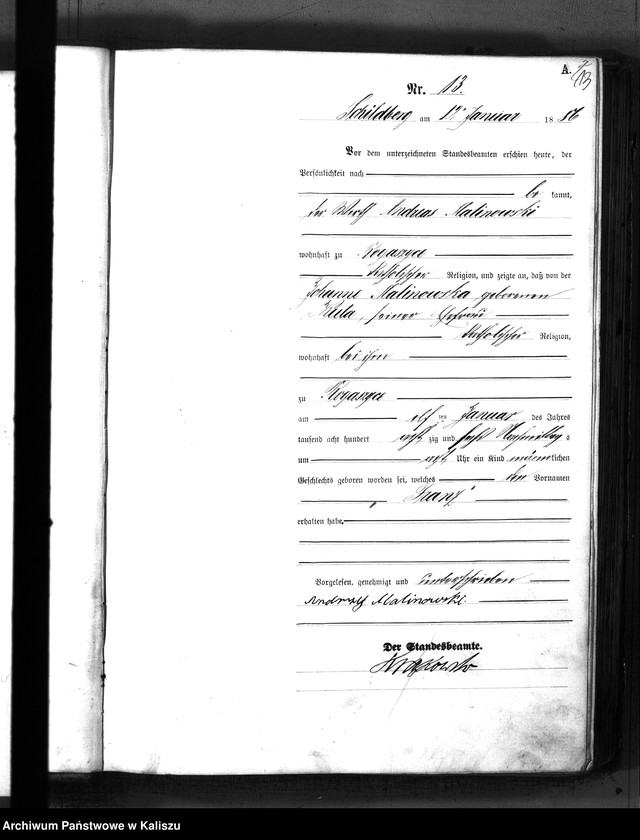 A.
13
Nr. 13.
Schildberg am 12 Januar 18 86
Vor dem unterzeichneten Standesbeamten erschien heute, der
Persönlichkeit nach
be kannt,
der Wirth Andreas Malinowski
wohnhaft zu Rogaszyce
katholischer Religion, und zeigte an, daß von der
Johanne Malinowska geborenen
Kula, seiner Ehefrau
katholischer Religion,
wohnhaft bei ihm
zu Rogaszyce
am elf ten Januar des Jahres
tausend acht hundert acht zig und sechs Nachmittag s
um acht Uhr ein Kind männlichen
Geschlechts geboren worden sei, welches den Vornamen
Franz
erhalten habe.
Vorgelesen, genehmigt und unterschrieben
Malinowski.
Der Standesbeamte.
Archiwum Państwowe w Kaliszu